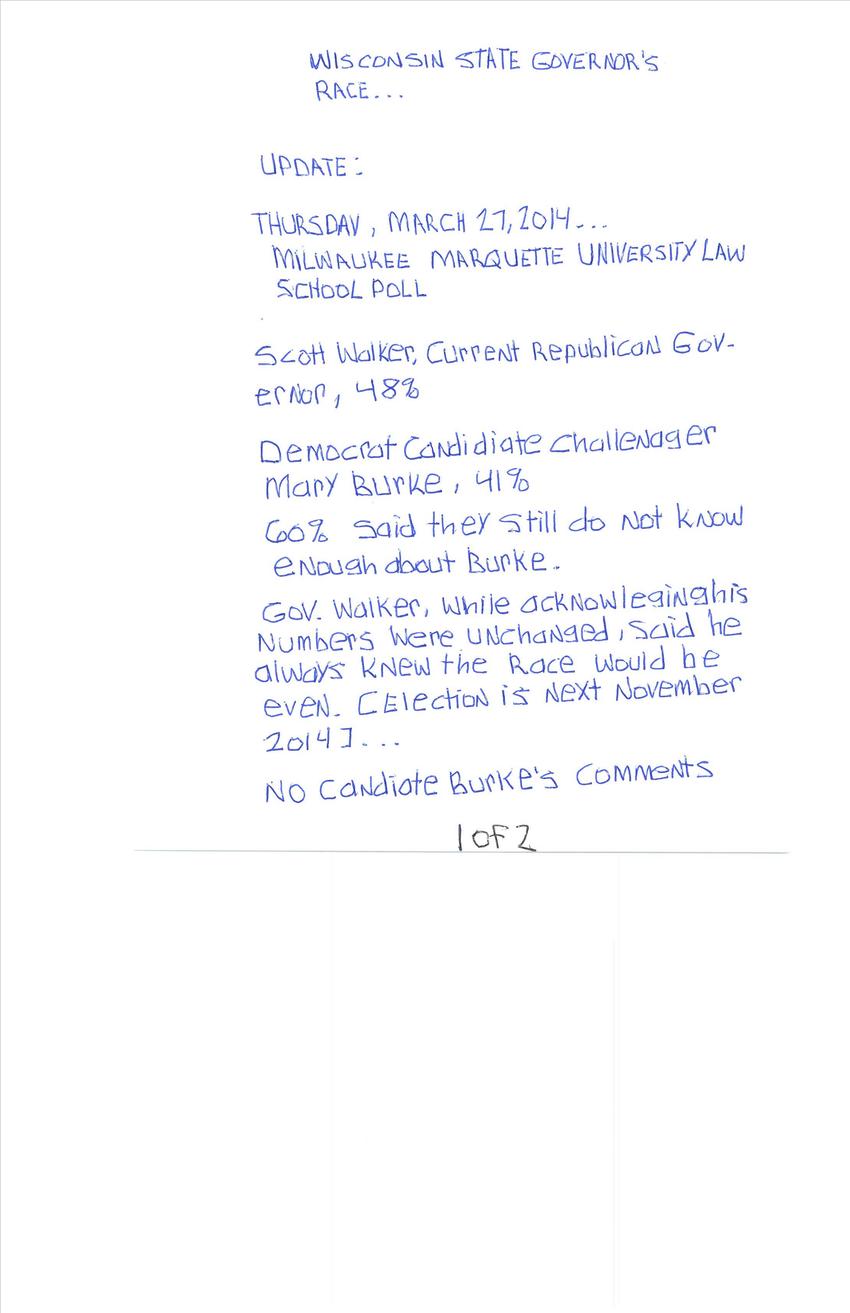 WISCONSIN STATE GOVERNOR'S
RACE...
UPDATE:
THURSDAY, MARCH 27, 2014...
MILWAUKEE MARQUETTE UNIVERSITY LAW
SCHOOL POLL
Scott Walker, Current Republican Gov-
ernor, 48%
Democrat Candidiate Challenager
Mary Burke, 41%
60% said they still do not know
enough about Burke.
Gov. Walker, while acknowleginghis
numbers were unchanged, said he
always knew the Race would be
even. [Election is next November
2014]...
No Candiate Burke's comments
1 of 2